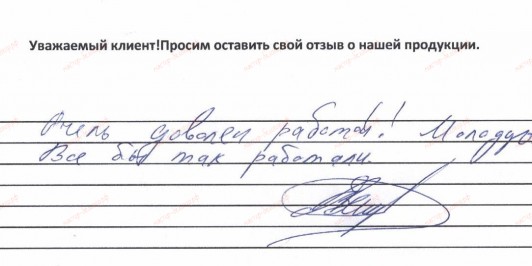 Уважаемый клиент!Просим оставить свой отзыв о нашей продукции.
Очень доволен работой! Молодцы
Все бы так работали.